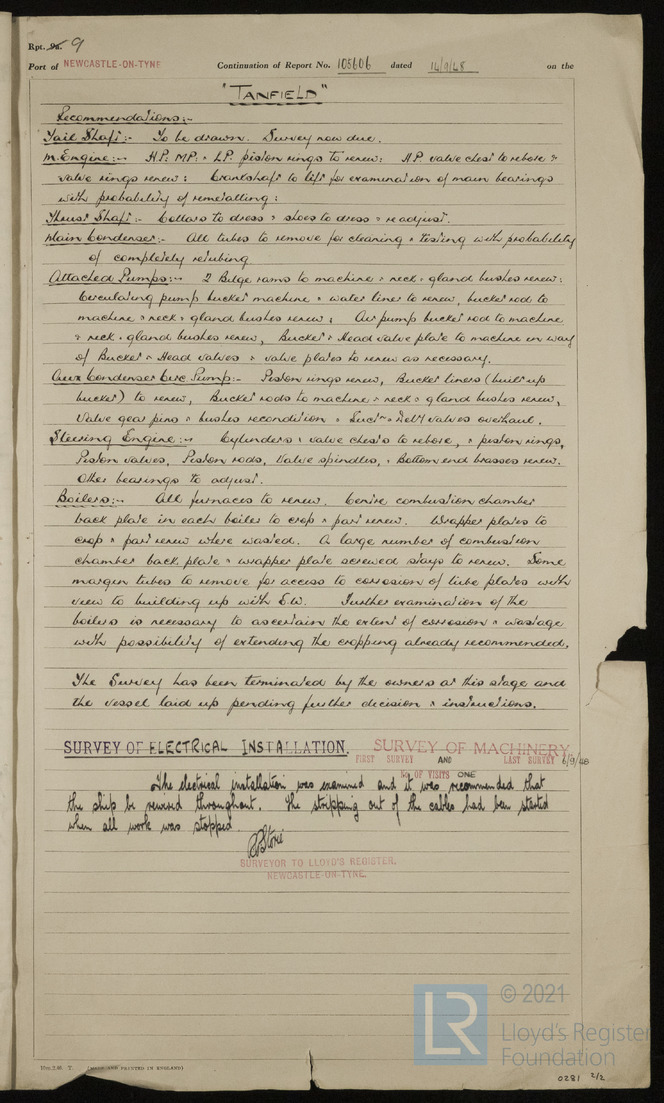 Rpt. 9a. 9
Port of NEWCASTLE-ON-TYNE Continuation of Report No. 105606 dated 14/9/48 on the
"TANFIELD"
Recommendations:-
Tail Shaft:- To be drawn. Survey now due.
M. Engine:- H.P. M.P. & L.P. piston rings to renew: H.P. valve chest to rebore &
valve rings renew: Crankshaft to lift for examination of main bearings
with probability of remetalling:
Thrust Shaft:- Collars to dress & shoes to dress & readjust.
Main Condenser:- All tubes to remove for cleaning & testing with probability
of completely retubing
Attached Pumps:- 2 Bilge rams to machine & neck & gland bushes renew:
Circulating pump bucket machine & water liner to renew, bucket rod to
machine & neck & gland bushes renew: Air pump bucket rod to machine
& neck & gland bushes renew, Bucket & Head valve plate to machine in way
of Bucket & Head valves & valve plates to renew as necessary.
Aux Condenser Circ. Pump:- Piston rings renew, Bucket liners (built up
bucket) to renew, Bucket rods to machine & neck & gland bushes renew,
Valve gear pins & bushes recondition & Suctn & Dely valves overhaul.
Steering Engine:- Cylinders & valve chests to rebore, & piston rings,
Piston valves, Piston rods, Valve spindles, & Bottom end brasses renew.
Other bearings to adjust.
Boilers:- All furnaces to renew. Centre combustion chamber
back plate in each boiler to crop & part renew. Wrapper plates to
crop & part renew where wasted. A large number of combustion
chamber back plate & wrapper plate screwed stays to renew. Some
margin tubes to remove for access to corrosion of tube plates with
view to building up with E.W. Further examination of the
boilers is necessary to ascertain the extent of corrosion & wastage
with possibility of extending the cropping already recommended.
The Survey has been terminated by the owners at this stage and
the vessel laid up pending further decision & instructions.
SURVEY OF ELECTRICAL INSTALLATION. SURVEY OF MACHINERY
FIRST SURVEY AND LAST SURVEY 6/9/48
No OF VISITS ONE
The electrical installation was examined and it was recommended that
the ship be rewired throughout. The stripping out of the cables had been started
when all work was stopped.
SURVEYOR TO LLOYD'S REGISTER.
NEWCASTLE-ON-TYNE.
LR
© 2021
Lloyd's Register
Foundation
(MADE AND PRINTED IN ENGLAND)
0281 2/2